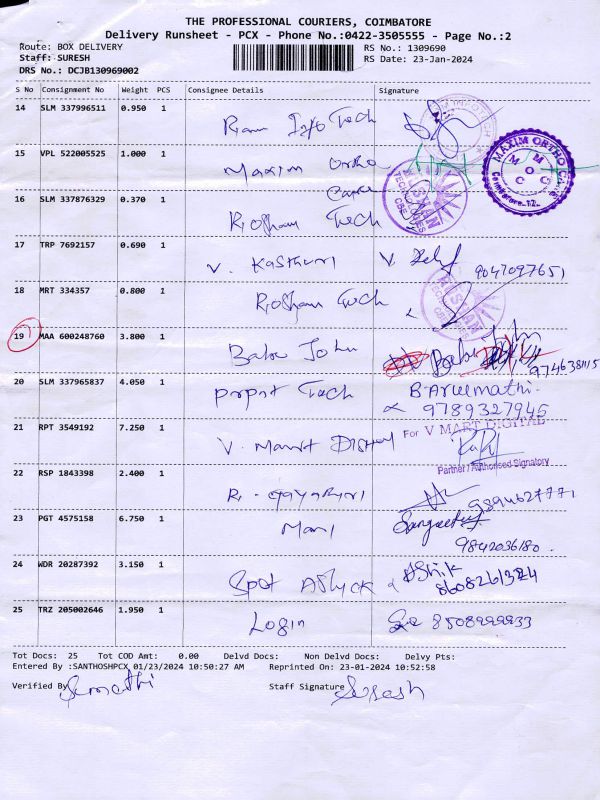 THE PROFESSIONAL COURIERS, COIMBATORE
Delivery Runsheet - PCX - Phone No.:0422-3505555 - Page No.:2
Route: BOX DELIVERY RS No.: 1309690
Staff: SURESH RS Date: 23-Jan-2024
DRS No.: DCJB130969002
S No Consignment No Weight PCS Consignee Details Signature
14 SLM 337996511 0.950 1 Ram Info Tech
15 VPL 522005525 1.000 1 Maxim Ortho Care
MAXIM ORTHO CARE
M M O C C
Coimbatore-12.
16 SLM 337876329 0.370 1 Rosham Tech
17 TRP 7692157 0.690 1 V. Kasthuri V. 9047097651
18 MRT 334357 0.800 1 Rosham Tech
19 MAA 600248760 3.800 1 Babu John Babu John
20 SLM 337965837 4.050 1 Propst Tech B. Arulmathi.
9789327945
21 RPT 3549192 7.250 1 V. Mart For V MART DIGITAL
Partner / Authorised Signatory
22 RSP 1843398 2.400 1 R. Gayathri 9894627771
23 PGT 4575158 6.750 1 Mani
9842036180.
24 WDR 20287392 3.150 1 Spot Ashik
8608261324
25 TRZ 205002646 1.950 1 Login 8508999933
Tot Docs: 25 Tot COD Amt: 0.00 Delvd Docs: Non Delvd Docs: Delvy Pts:
Entered By :SANTHOSHPCX, 01/23/2024 10:50:27 AM Reprinted On: 23-01-2024 10:52:58
Verified By Sumathi Staff Signature Suresh